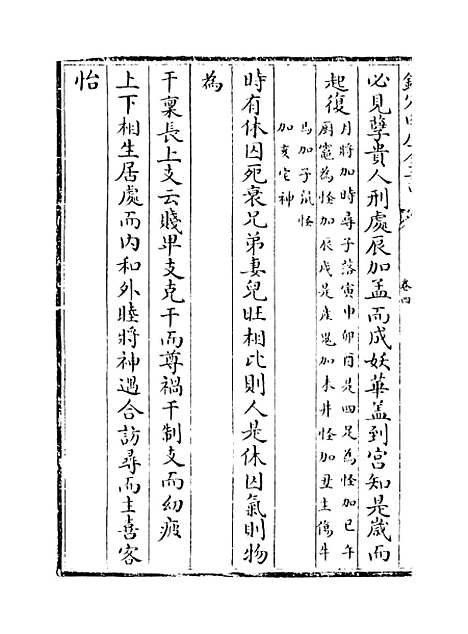 卷四
必見孽貴人刑處辰加孟而成妖華盖到宫知是崴而
起復
月將加時尋子落寅申卯酉是四足為怪加巳午
厨竈為怪加辰戌是産崽加未井怪加丑主傷牛
馬加子鼠怪
加亥宅神
時有休囚死衰兄弟妻兒旺相比則人是休囚氣則物
為
干禀長上支云賤卑支克干而尊禍干制支而幼疲
上下相生居處而内和外睦將神遇合訪尋而主喜客
怡